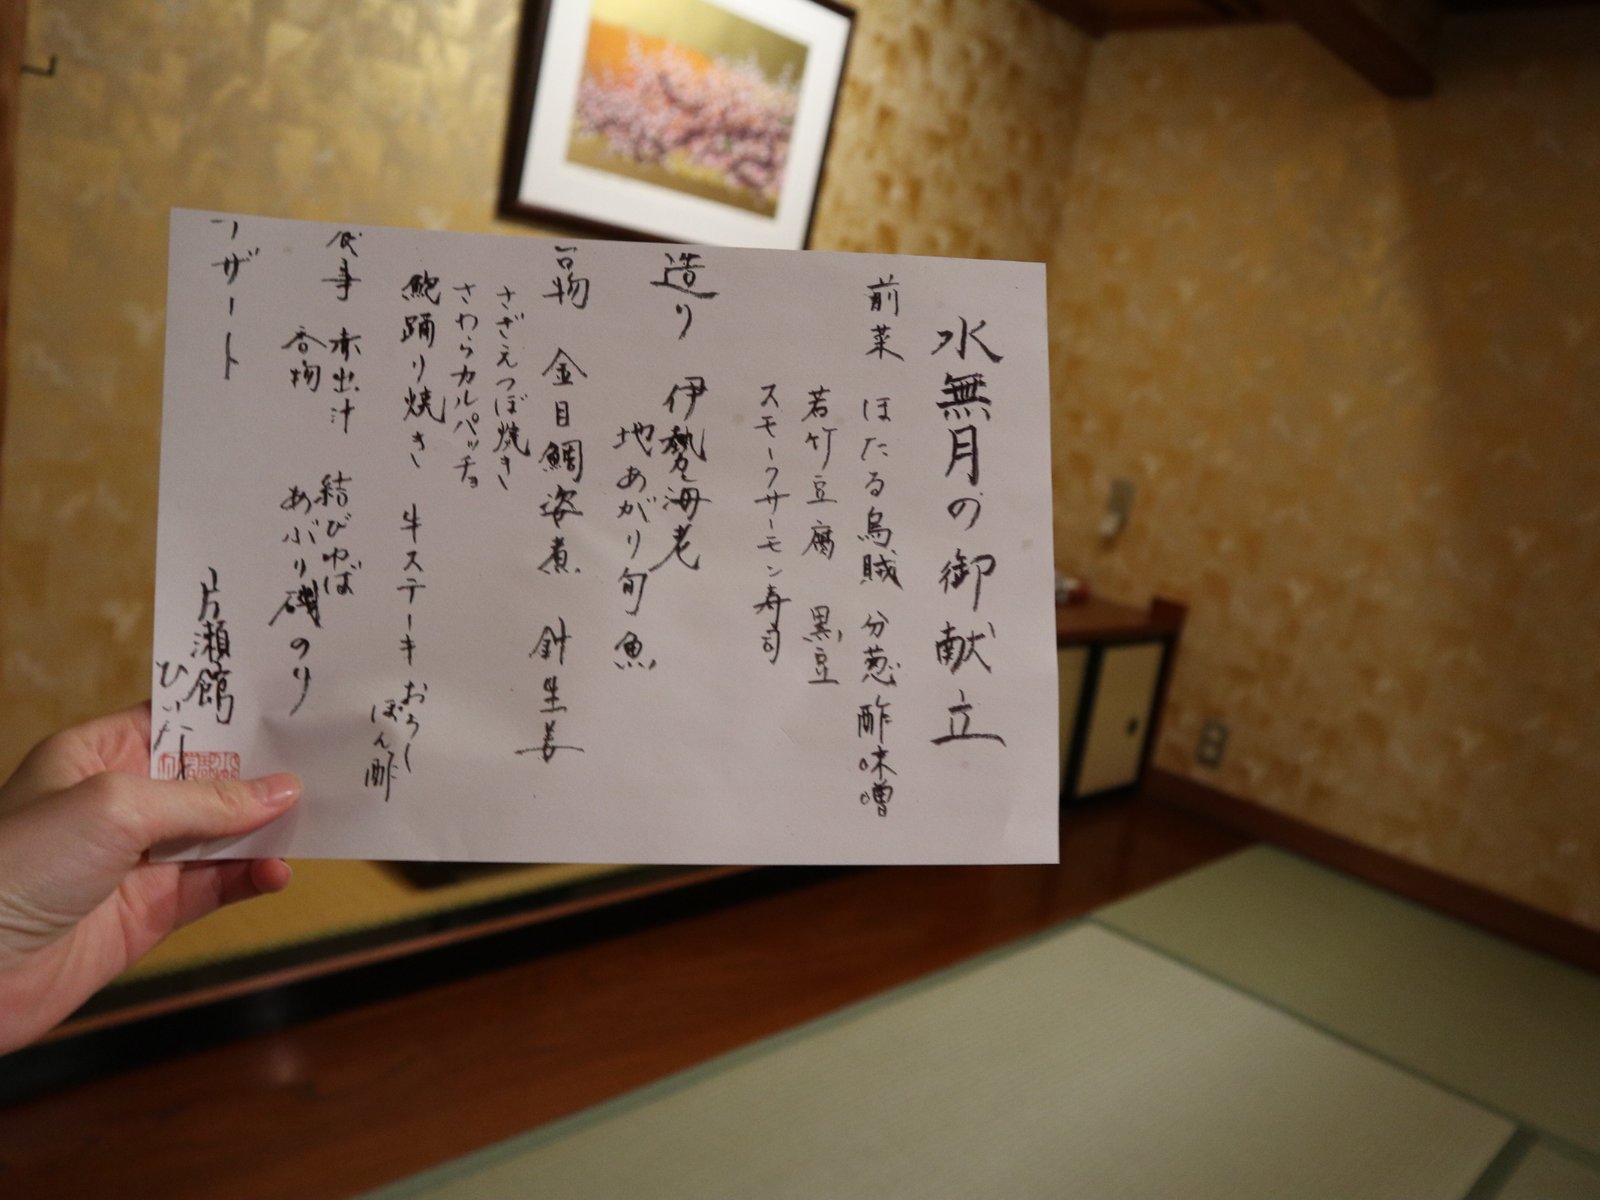 水無月の御献立
前菜 ほたる烏賊 分葱酢味噌
若竹豆腐 黒豆
スモークサーモン寿司
造り 伊勢海老
地あがり旬魚
台物 金目鯛姿煮 針生姜
さざえつぼ焼き
さわらカルパッチョ
鮑踊り焼き 牛ステーキ おろし
ぽん酢
食事 赤出汁 結びゆば
香物 あぶり磯のり
デザート
片瀬館